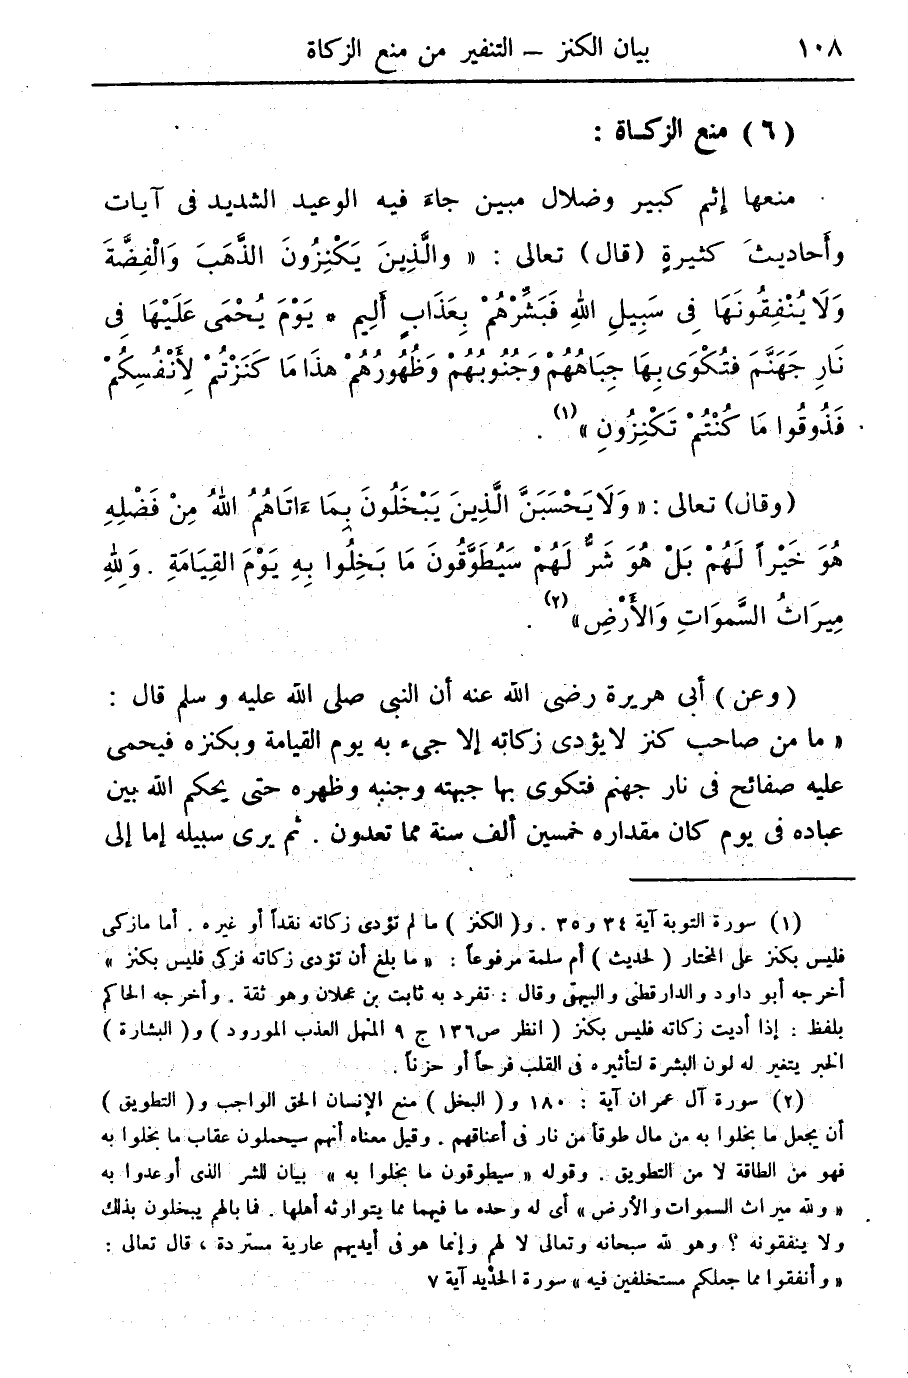 ١٠٨ بيان الكنز – التنفير من منع الزكاة
(٦) منع الزكاة :
منعها إثم كبير وضلال مبين جاءَ فيه الوعيد الشديد فى آيات
وأحاديثَ كثيرةٍ (قال) تعالى : « والَّذِينَ يَكْنِزُونَ الذَّهَبَ وَالْفِضَّةَ
وَلَا يُنْفِقُونَهَا فِى سَبِيلِ اللهِ فَبَشِّرْهُمْ بِعَذَابٍ أَلِيمٍ * يَوْمَ يُحْمَى عَلَيْهَا فِى
نَارِ جَهَنَّمَ فَتُكْوَى بِهَا جِبَاهُهُمْ وَجُنُوبُهُمْ وَظُهُورُهُمْ هذَا مَا كَنَزْتُمْ لِأَنْفُسِكُمْ
فَذُوقُوا مَا كُنْتُمْ تَكْنِزُونِ »(١) .
(وقال) تعالى : « وَلَا يَحْسَبَنَّ الَّذِينَ يَبْخَلُونَ بِمَا ءَاتَاهُمُ اللهُ مِنْ فَضْلِهِ
هُوَ خَيْراً لَهُمْ بَلْ هُوَ شَرٌّ لَهُمْ سَيُطَوَّقُونَ مَا بَخِلُوا بِهِ يَوْمَ القِيَامَةِ . وَللهِ
مِيرَاثُ السَّموَاتِ وَالأَرْضِ»(٢) .
(وعن) أبى هريرة رضى الله عنه أن النبى صلى الله عليه و سلم قال :
« ما من صاحب كنز لا يؤدى زكاته إلا جىء به يوم القيامة وبكنزه فيحمى
عليه صفائح فى نار جهنم فتكوى بها جبهته وجنبه وظهره حتى يحكم الله بين
عباده فى يوم كان مقداره خمسين ألف سنة مما تعدون . ثم يرى سبيله إما إلى
(١) سورة التوبة آية ٣٤ و ٣٥ . و( الكنز ) ما لم تؤدى زكاته نقداً أو غيره . أما مازكى
فليس بكنز على المختار ( لحديث ) أم سلمة مرفوعاً : « ما بلغ أن تؤدى زكاته فزكى فليس بكنز »
أخرجه أبو داود والدارقطنى والبيهقى وقال : تفرد به ثابت بن عجلان وهو ثقة . وأخرجه الحاكم
بلفظ : إذا أديت زكاته فليس بكنز ( انظر ص١٣٦ ج ٩ المنهل العذب المورود ) و( البشارة )
الخبر يتغير له لون البشرة لتأثيره فى القلب فرحاً أو حزناً .
(٢) سورة آل عمران آية : ١٨٠ و( البخل ) منع الإنسان الحق الواجب و( التطويق )
أن يجعل ما بخلوا به من مال طوقاً من نار فى أعناقهم . وقيل معناه أنهم سيحملون عقاب ما بخلوا به
فهو من الطاقة لا من التطويق . وقوله « سيطوقون ما بخلوا به » بيان للشر الذى أوعدوا به
« ولله ميراث السموات والأرض » أى له وحده ما فيهما مما يتوارثه أهلها . فما بالهم يبخلون بذلك
ولا ينفقونه ؟ وهو لله سبحانه وتعالى لا لهم وإنما هو فى أيديهم عارية مستردة ، قال تعالى :
« وأنفقوا مما جعلكم مستخلفين فيه » سورة الحديد آية ٧